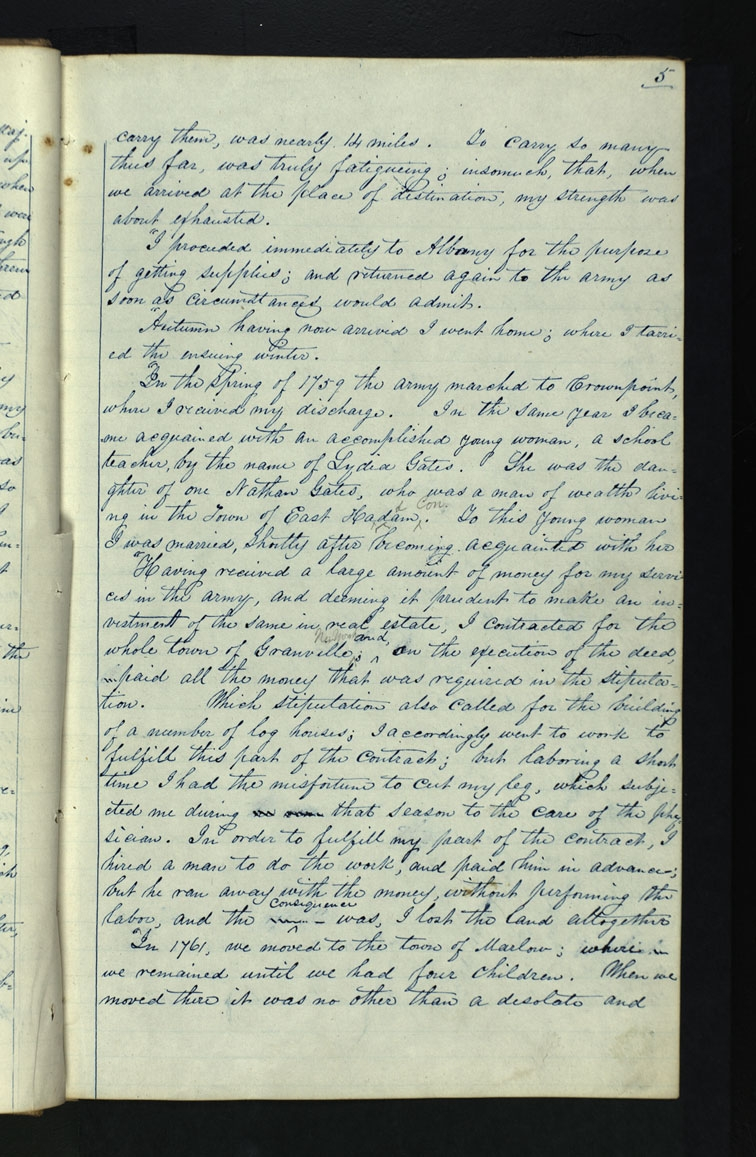 5
carry them, was nearly 14 miles. To carry so many
thus far, was truly fatigueing; insomuch, that, when
we arrived at the place of distination, my strength was
about exhausted.
"I proceeded immediately to Albany for the purpose
of getting supplies; and returned again to the army as
soon as circumstances would admit.
"Autumn having now arrived I went home; where I tarri=
ed the ensuing winter.
"In the Spring of 1759 the army marched to Crownpoint,
where I received my discharge. In the same year I beca=
me acquained with an accomplished young woman, a school
teacher, by the name of Lydia Gates. She was the dau=
ghter of one Nathan Gates, who was a man of wealth livi=
Con.
ng in the Town of East Hadam. To this young woman
I was married, Shortly after becoming acquainted with her
"Having recieved a large amount of money for my servi
ces in the army, and deeming it prudent to make an in=
vestment of the same in real estate, I contracted for the
and,
whole town of Granville; on the execution of the deed,
paid all the money that was required in the stipula=
tion. Which stipulation also called for the building
of a number of log houses; I accordingly went to work to
fulfill this part of the contract; but laboring a short
time I had the misfortune to cut my leg, which subje=
cted me during that season to the care of the phy
sician. In order to fulfill my part of the contract, I
hired a man to do the work, and paid him in advance;
but he ran away with the money, without performing the
consequence
labor, and the was, I lost the land altogether
"In 1761, we moved to the town of Marlow; where
we remained until we had four children. When we
moved there it was no other than a desolate and